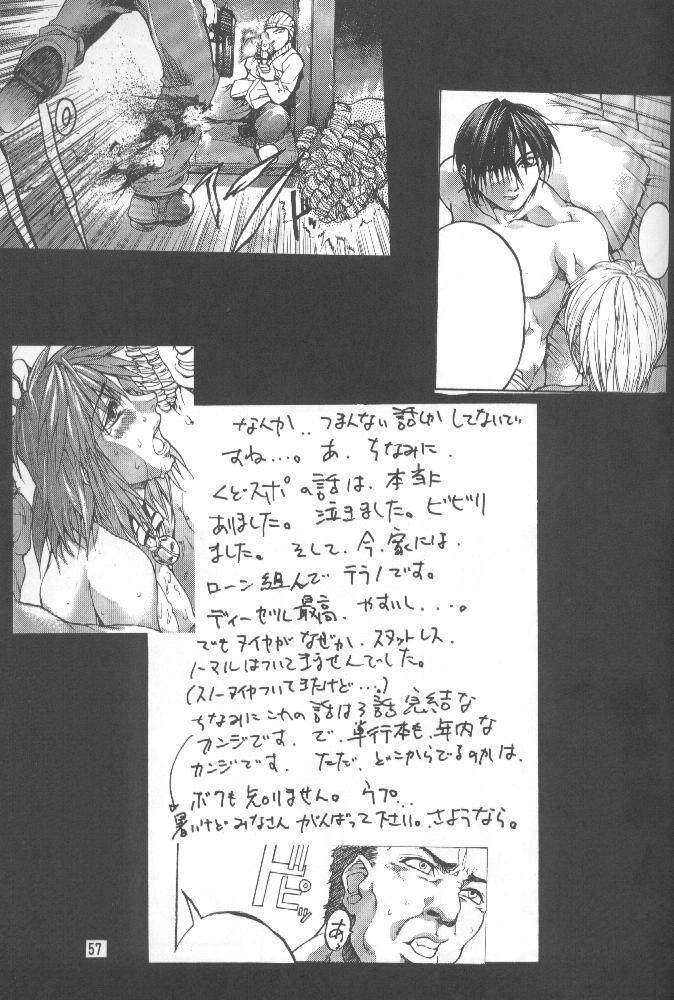 なんか‥つまんない話しか してないで
すね…。あ、ちなみに、
くど・スポの話は、本当に
ありました。泣きました。ビビリ
ました。そして、今、家には、
ローン組んで テラノです。
ディーゼル最高、やすいし...。
でもタイヤがなぜか、スタットレス、
ノーマルはついてきませんでした。
(スノータイヤついてきたけど…。)
ちなみにこれの話は3話完結な
カンジです。で、単行本も、年内な
カンジです。ただ、どこからでるのかは、
ボクも知りません。ウプ...
暑いけど みなさん がんばって下さい。さようなら。
ピッ
あ、
57